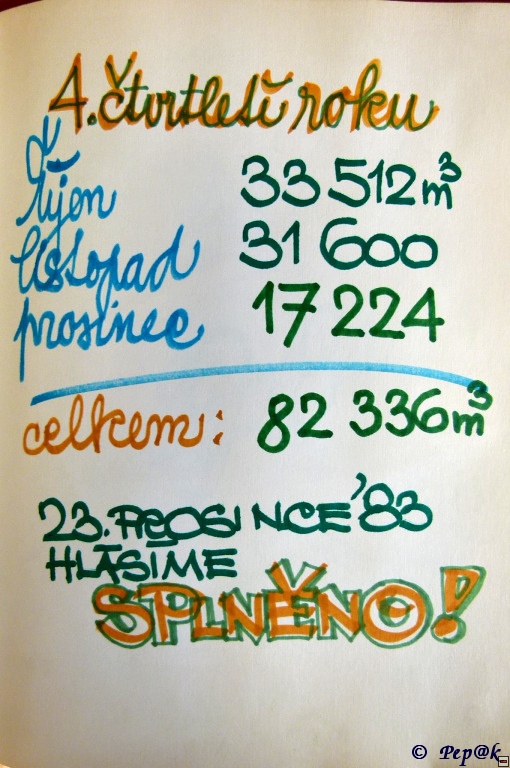 4. čtvrtletí roku
říjen 33 512 m³
listopad 31 600
prosinec 17 224
celkem: 82 336 m³
23. PROSINCE '83
HLÁSÍME
SPLNĚNO!
© Pep@k